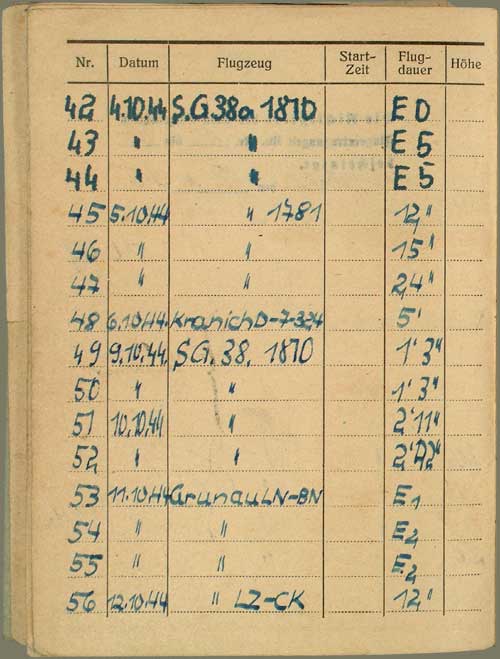 Nr. Datum Flugzeug Start-Zeit Flug-dauer Höhe
42 4.10.44 S.G.38a 1810 E 0
43 " " E 5
44 " " E 5
45 5.10.44 " 1781 12"
46 " " 15"
47 " " 24"
48 6.10.44. Kranich D-7-324 5'
49 9.10.44. SG. 38. 1810 1' 3"
50 " " 1' 3"
51 10.10.44 " 2' 11"
52 " "
53 11.10.44 Grunau LN-BN E1
54 " " E2
55 " " E2
56 12.10.44 " LZ-CK 12"